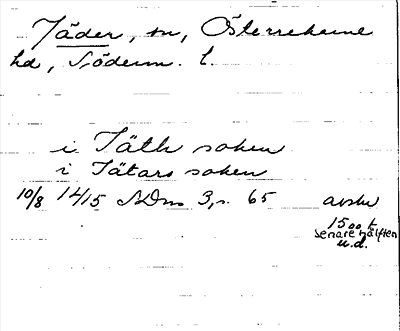 Jäder, sn, Österrekarne
hd, Söderm. l.
i Täth soken
i Tätars soken
10/8 1415 SDns 3, s. 65 avskr
1500 t
senare hälften
u.d.